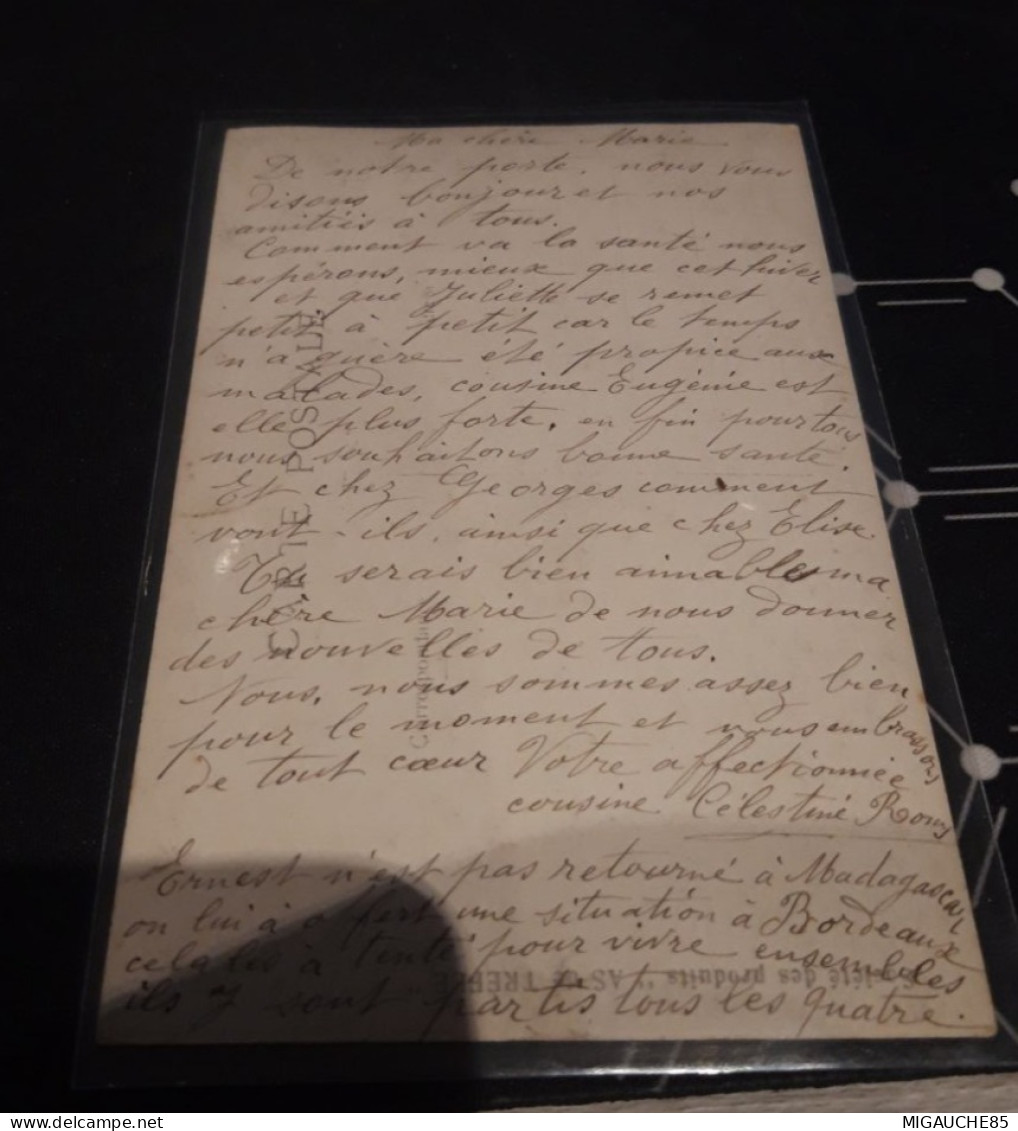 Ma chère Marie
De notre porte, nous vous
disons bonjour et nos
amitiés à tous.
Comment va la santé nous
espérons, mieux que cet hiver
et que Juliette se remet
petit à petit car le temps
n'a guère été propice aux
malades, cousine Eugénie est
elle plus forte, en fin pour tous
nous souhaitons bonne santé.
Et chez Georges comment
vont-ils, ainsi que chez Elise
Tu serais bien aimables ma
chère Marie de nous donner
des nouvelles de tous.
Nous, nous sommes assez bien
pour le moment et vous embrassons
de tout cœur Votre affectionnée
cousine Célestine
Ernest n'est pas retourné à Madagascar
on lui à offert une situation à Bordeaux
cela les à tenté pour vivre ensembles
ils y sont partis tous les quatre.
CARTE POSTALE
Correspondance
Société des produits "AS de TREFLE"
MIGAUCHE85